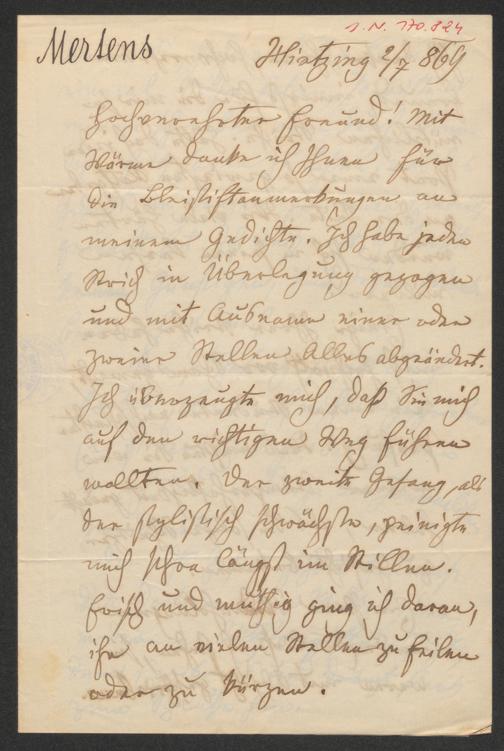 I.N. 170.824
Mertens
Hietzing 2/7 869
Hochverehrter Freund! Mit
Wärme danke ich Ihnen für
die Bleistiftanmerkungen an
meinem Gedichte. Ich habe jeden
Strich in Überlegung gezogen
und mit Ausname einer oder
zweier Stellen Alles abgeändert.
Ich überzeugte mich, daß Sie mich
auf den richtigen Weg führen
wollten. Der zweite Gesang, als
der stylistisch schwächste, peinigte
mich schon längst im Stillen.
Frisch und muthig ging ich daran,
ihn an vielen Stellen zu feilen
oder zu kürzen.